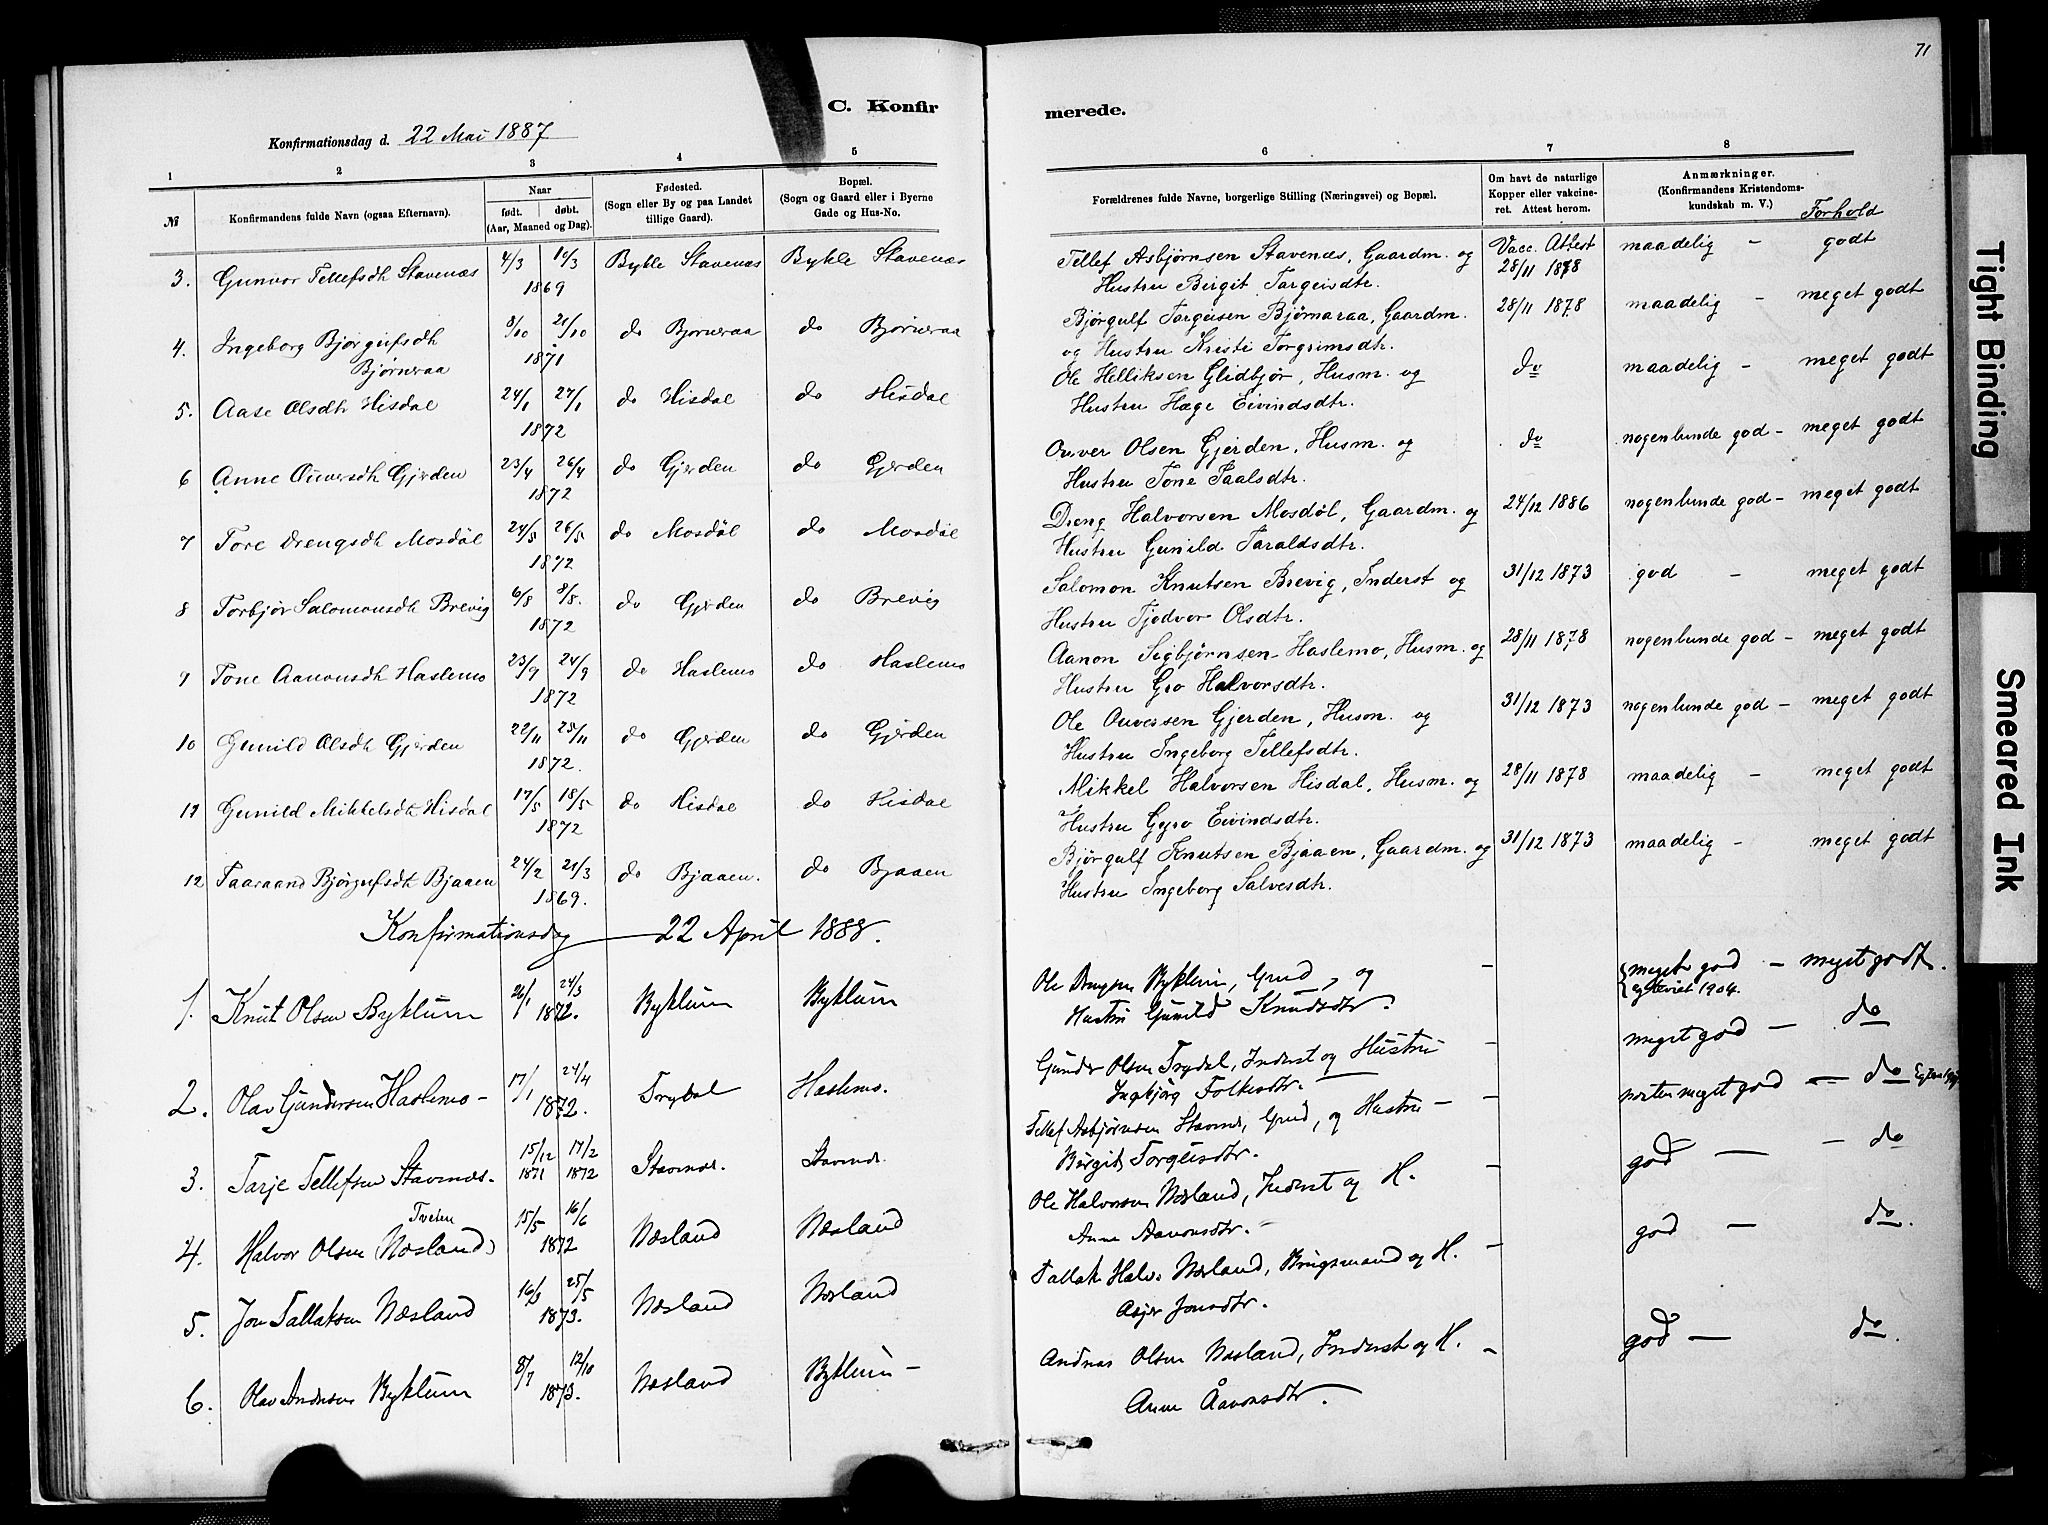 71
C. Konfirmerede.
Konfirmationsdag d. 22 Mai 1887
1 2 3 4 5 6 7 8
№
Konfirmandens fulde Navn (ogsaa Efternavn).
Naar
født. døbt.
(Aar, Maaned og Dag).
Fødested.
(Sogn eller By og paa Landet
tillige Gaard).
Bopæl.
(Sogn og Gaard eller i Byerne
Gade og Hus-No.
Forældrenes fulde Navne, borgerlige Stilling (Næringsvei) og Bopæl.
Om havt de naturlige
Kopper eller vakcine-
ret. Attest herom.
Anmærkninger.
(Konfirmandens Kristendoms-
kundskab m. V.)
Forhold
3. Gunvor Tellefsdt Stavenæs 4/3 14/3 1869 Bykle Stavenæs Bykle Stavenæs Tellef Asbjørnsen Stavenæs, Gaardm. og Vacc. Attest maadelig - godt
Hustru Birgit Targeisdtr. 28/11 1878
4. Ingeborg Bjørgufsdt 8/10 21/10 do Bjørneraa do Bjørneraa Bjørgulf Targeisen Bjørnaraa, Gaardm. 28/11 1878 maadelig - meget godt
Bjørneraa 1871 og Hustru Kristi Torgrimsdtr.
5. Aase Olsdt Hisdal 24/1 27/1 1872 do Hisdal do Hisdal Ole Helliksen Glidbjør, Husm. og do maadelig - meget godt
Hustru Hæge Eivindsdtr.
6 Anne Ouversdt Gjerden 23/4 26/4 1872 do Gjerden do Gjerden Ouver Olsen Gjerden, Husm. og do nogenlunde god - meget godt
Hustru Tone Paalsdtr.
7 Tore Drengsdt Mosdøl 24/5 26/5 1872 do Mosdøl do Mosdøl Dreng Halvorsen Mosdøl, Gaardm. og 24/12 1886 nogenlunde god - meget godt
Hustru Gunild Taraldsdtr.
8 Torbjør Salomonsdt Brevig 6/8 8/8. 1872 do Gjerden do Brevig Salomon Knutsen Brevig, Inderst og 31/12 1873 god - meget godt
Hustru Tjødvor Olsdtr.
9 Tone Aanonsdt Haslemo 23/9 24/9 1872 do Haslemo do Haslemo Aanon Sigbjørnsen Haslemo, Husm. og 28/11 1878 nogenlunde god - meget godt
Hustru Gro Halvorsdtr.
10 Gunild Olsdt Gjerden 22/11 25/11 1872. do Gjerden do Gjerden Ole Ouversen Gjerden, Husm. og 31/12 1873 nogenlunde god - meget godt
Hustru Ingeborg Tellefsdtr.
11 Gunild Mikkelsdt Hisdal 17/5 18/5 1872 do Hisdal do Hisdal Mikkel Halvorsen Hisdal, Husm. og 28/11 1878 maadelig - meget godt
Hustru Gyro Eivindsdtr.
12 Taaraand Bjørgufsdt Bjaaen 24/2 21/3 1869. do Bjaaen. do Bjaaen Bjørgulf Knutsen Bjaaen, Gaardm. og 31/12 1873 maadelig - meget godt
Hustru Ingeborg Salvesdtr.
Konfirmationsdag 22 April 1888.
1. Knut Olsen Byklum 26/1 24/3 1872. Byklum Byklum Ole Byklum, Grmd, og - meget god - meget godt.
Hustru Gunild Knudsdtr. 1904.
2. Olav Gundersen Haslemo - 17/1 24/4 1872. Trydal Haslemo. Gunder Olsen Trydal, Inderst og Hustru - meget god - do
Ingbjørg Folkesdtr.
3. Tarje Tellefsen Stavenæs. 15/12 1871 17/2 1872 Stavenes. Stavenes. Tellef Asbjørnsen Stavnes, Grmd, og Hustru - - næsten meget god - do
Birgit Torgeisdtr.
4. Halvor Olsen (Næsland) Tveten 15/5 16/6 1872 Næsland Næsland Ole Halvorsen Næsland, Inderst og H. - god - - do
Anne Aanonsdtr. -
5. Jon Tallaksen Næsland 16/3 25/5 1873. Næsland Næsland Tallak Halv. Næsland, Brugsmand og H. - god - do.
Asjer Jonsdtr.
6. Olav Andersen Byklum 8/7 12/10 1873. Næsland Byklum - Andreas Olsen Næsland, Inderst og H. - god - do.
Anne Åanonsdtr.
Tight Binding
Smeared Ink